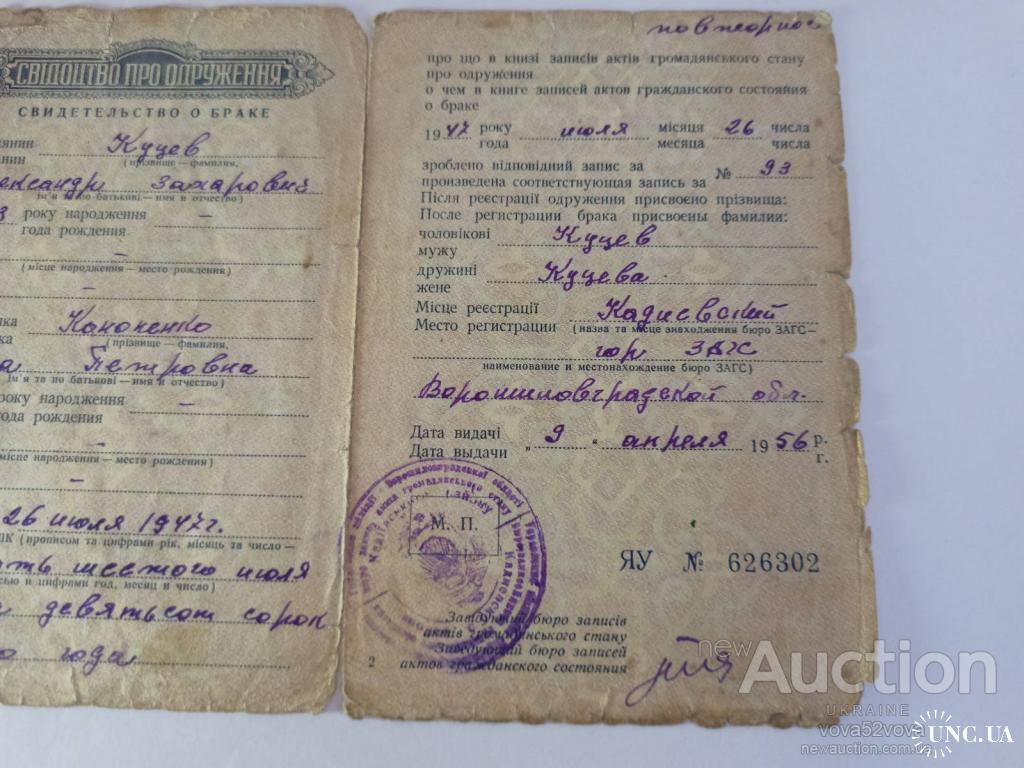 СВІДОЦТВО ПРО ОДРУЖЕННЯ
СВИДЕТЕЛЬСТВО О БРАКЕ
янин
нин
Куцев
(прізвище — фамилия,
лександр Захарович
ім'я по батькові — имя и отчество)
3 року народження —
года рождения
—
(місце народження — место рождения)
—
нка
ка
Кононенко
(прізвище — фамилия,
а Петровна
ім'я та по батькові — имя и отчество)
року народження —
ода рождения
—
місце народження — место рождения)
—
26 июля 1947 г.
(прописом та цифрами рік, місяць та число —
ть шестого июля
сью и цифрами год, месяц и число)
девятьсот сорок
о года
повторное
про що в книзі записів актів громадянського стану
про одруження
о чем в книге записей актов гражданского состояния
о браке
1947 року июля місяця 26 числа
года месяца числа
зроблено відповідний запис за
произведена соответствующая запись за № 93
Після реєстрації одруження присвоєно прізвища:
После регистрации брака присвоены фамилии:
чоловікові Куцев
мужу
дружині Куцева
жене
Місце реєстрації Кадиевский
Место регистрации (назва та місце знаходження бюро ЗАГС—
гор ЗАГС
наименование и местонахождение бюро ЗАГС)
Ворошиловградской обл.
Дата видачі
Дата выдачи „ 9 “ апреля 1956 р.
г.
М. П.
ЯУ № 626302
Завідуючий бюро записів
актів громадянського стану
Заведующий бюро записей
2 актов гражданского состояния
newAuction
UKRAINE
vova52vova
newauction.com.ua
UNC.UA